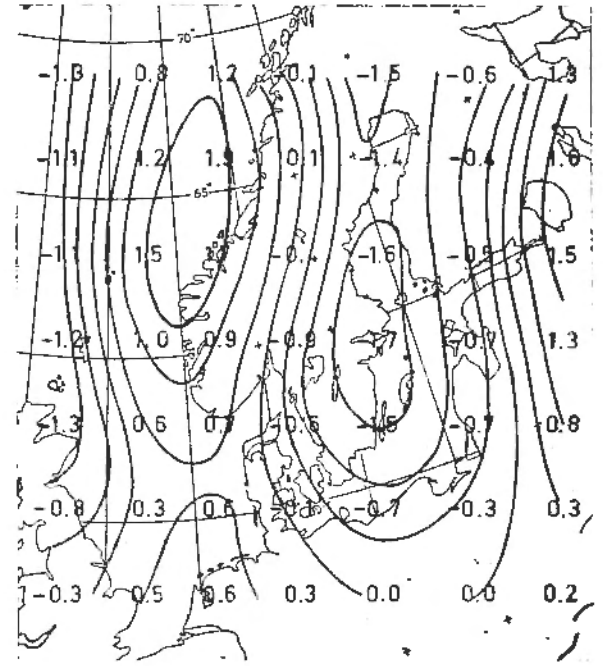 70°
-1.3 0.8 1.2 -0.1 -1.5 -0.6 1.3
-1.1 1.2 0.1 -1.4
65°
-1.1 1.5 -1.6 1.5
-1.2 1.0 0.9 -0.9 -0.7 1.3
-1.3 0.6 -0.6 -0.7 0.8
-0.8 0.3 0.6 -0.7 -0.3 0.3
-0.3 0.5 0.6 0.3 0.0 0.0 0.2